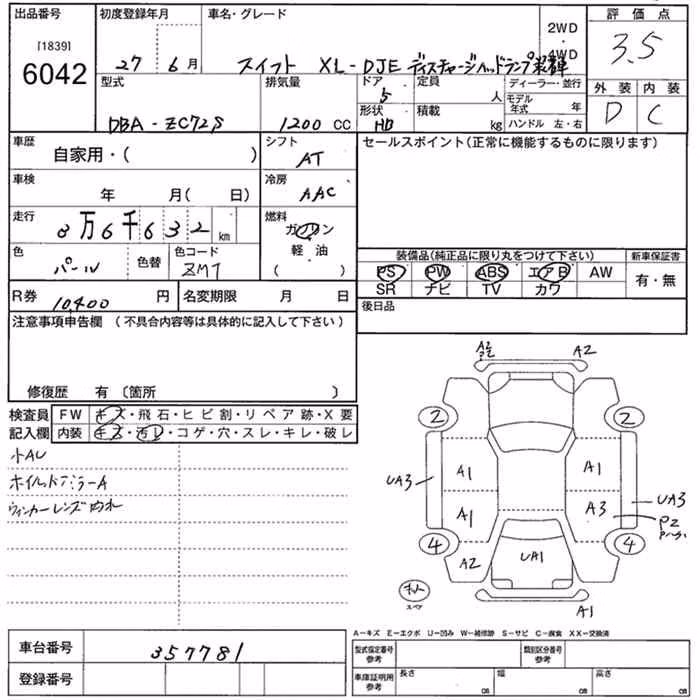 出品番号 初度登録年月 車名・グレード 2WD 評価点
[1839] ・ 3.5
6042 27 6月 スイフト XL-DJE ディスチャージヘッドランプ装着車 4WD
型式 排気量 ドア 定員 ディーラー・並行 外装 内装
5 人 モデル年式 年 D C
DBA-ZC72S 1200 CC 形状 HB 積載 kg ハンドル 左・右
車歴 自家用・( ) シフト AT セールスポイント(正常に機能するものに限ります)
車検 年 月(日) 冷房 AAC
走行 8万6千632 km 燃料 ガソリン 軽・油 ( )
色 パール 色替 色コード ZM7 装備品(純正品に限り丸をつけて下さい) 新車保証書
PS PW ABS エアB AW 有・無
R券 10,400 円 名変期限 月 日 SR ナビ TV カワ
注意事項申告欄 (不具合内容等は具体的に記入して下さい) 後日品
修復歴 有〔箇所 〕
検査員 FW キズ・飛石・ヒビ割・リペア跡・X要
記入欄 内装 キズ・汚レ・コゲ・穴・スレ・キレ・破レ
小AU
ホイルドミラーA
ウィンカーレンズ内水
A2 A2
2 2
A1 A1
UA3 UA3
A1 A3 P2
4 4
A2 UA1
スペア A1
A-キズ E-エクボ U-凹み W-補修跡 S-サビ C-腐食 XX-交換済
車台番号 357781 型式指定番号 参考 類別区分番号 参考
登録番号 車庫証明用 参考 長さ cm 幅 cm 高さ cm